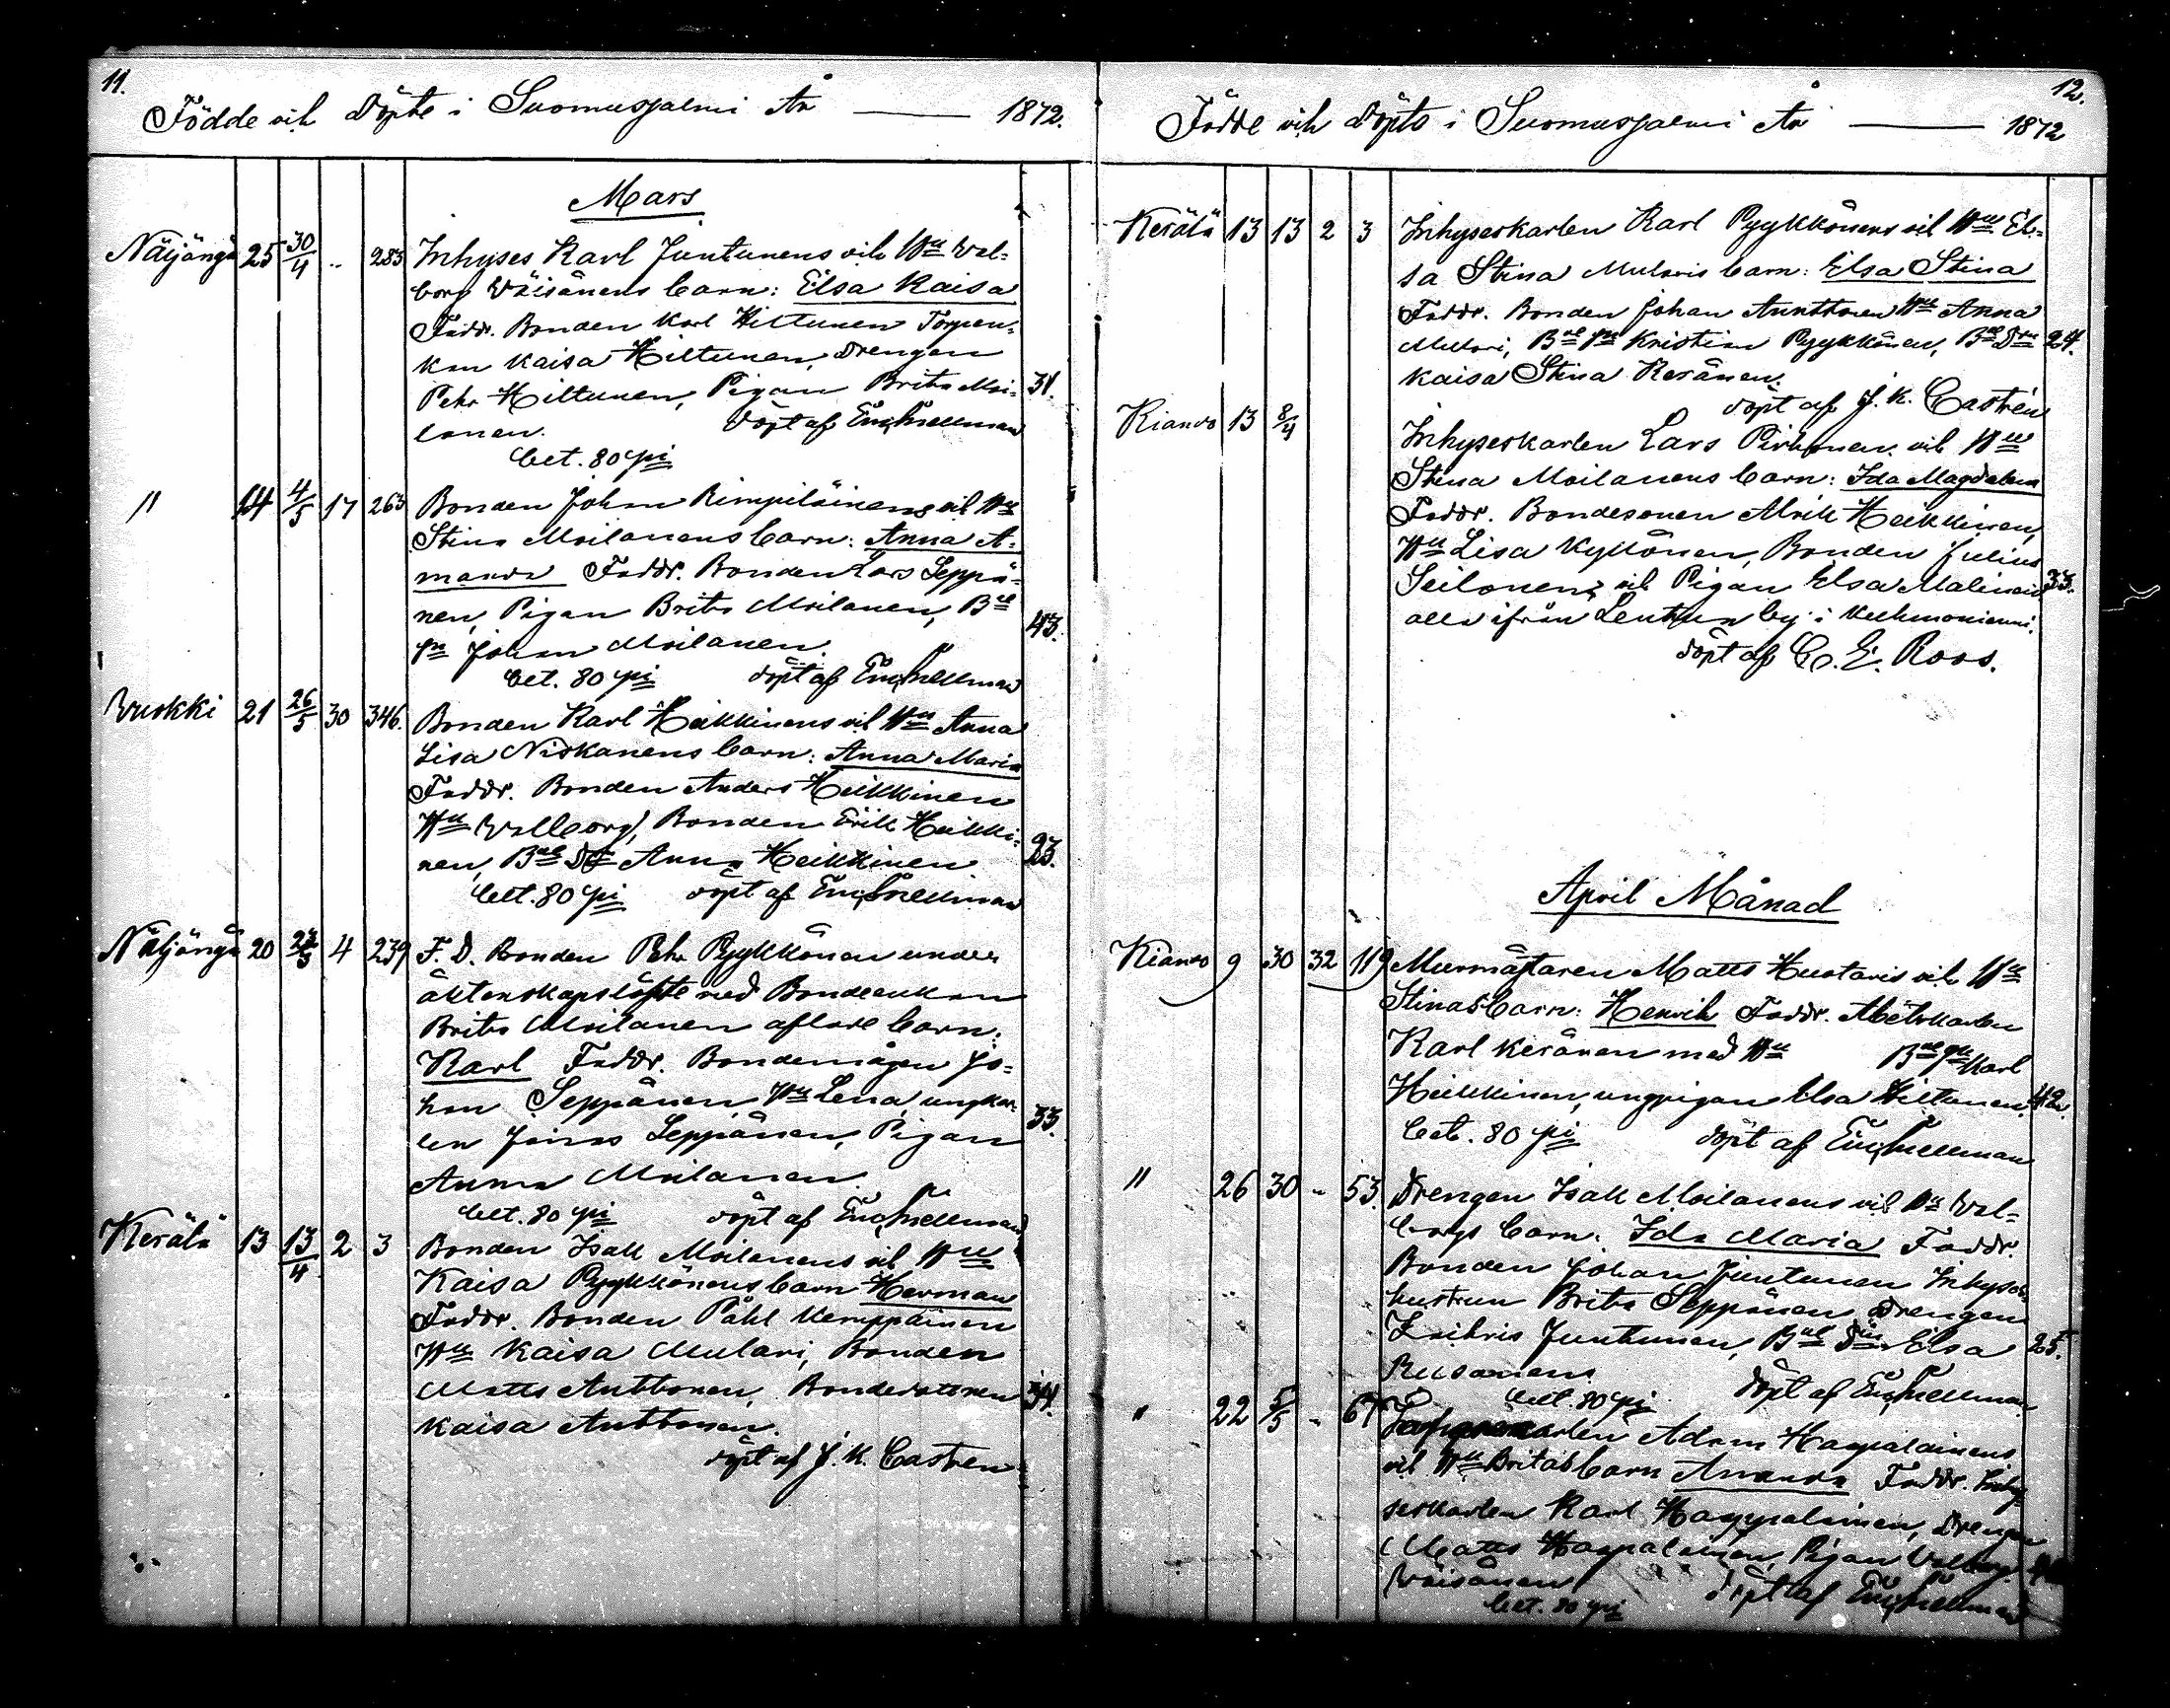 11.
Födde och döpte i Suomussalmi År — 1872.
Mars
Näljängä 25 30/4 .. 283 Inhyses Karl Juntunens och Hu Wal=
borg Väisänens barn: Elsa Kaisa
Faddr. Bonden Karl Hiltunen Torpen=
kan Kaisa Hiltunen, Drengen
Pehr Hiltunen, Pigan Brita Moi= 31.
lanen. döpt af
bet. 80 pi
" 14 4/5 17 263 Bonden Johan Kimpiläinens och Hu
Stina Moilanens barn: Anna A=
manda Faddr. Bonden Lars Seppä=
nen, Pigan Brita Moilanen, Bde 43.
sn Johan Moilanen.
bet. 80 pi döpt af
Vuokki 21 26/5 30 346. Bonden Karl Heikkinens och Hu Anna
Lisa Niskanens barn: Anna Maria
Faddr. Bonden Anders Heikkinen
Hu Walborg, Bonden Erik Heikki=
nen, Anna Heikkinen 23.
bet. 80 pi döpt af
Näljängä 20 4 239 F. D. Bonden Pehr Pyykkönen under
äktenskapslöfte med Bondeenkan
Brita Moilanen aflade barn:
Karl Faddr. Bondemågen Jo=
han Seppänen, Hu Lena, ungkar=
len Jonas Seppänen, Pigan 33.
Anna Moilanen.
bet. 80 pi döpt af
Kerälä 13 13/4 2 3 Bonden Isak Moilanens och Hu
Kaisa Pyykkönens barn Herman
Faddr. Bonden Påhl Kemppäinen
Hu Kaisa Mulari, Bonden
Matts Anttonen, Bondedottren 34.
Kaisa Anttonen.
döpt af J. K. Castren
12.
Födde och döpte i Suomussalmi År — 1872
Kerälä 13 13 2 3 Inhyseskarlen Karl Pyykkönens och Hu El=
sa Stina Mularis barn: Elsa Stina
Faddr. Bonden Johan Anttonen Hu Anna
Mulari, Kristian Pyykkönen, 24.
Kaisa Stina Keränen.
döpt af J. K. Castrén
Kianda 13 8/4 Inhyseskarlen Lars Pirhonen och Hu
Stina Moilanens barn: Ida Magdalena
Faddr. Bondesonen Alrik Heikkinen,
Hu Lisa Kyllönen, Bonden Julius
Seilonen, och Pigan Elsa Malinen 33.
alla ifrån Lentua by i Kuhmoniemi.
döpt af C. E. Roos.
April Månad
Kianda 9 30 32 119 Murmästaren Matts Huotaris och Hu
Stinas barn: Henrik Faddr. Arbetskarlen
Karl Keränen med Hu Karl
Heikkinen, ungpigan Elsa Hiltunen. 42.
bet. 80 pi döpt af
" 26 30 - 53. Drengen Isak Moilanens och Hu Wal=
borgs barn: Ida Maria Faddr.
Bonden Johan Juntunen Inhyses=
hustrun Brita Seppänen Drengen
Juntunen, Elsa 25.
Rusanen
bet. 80 pi döpt af
" 22 5/5 - 67 Adam Haapalainens
och Hu Britas barn Amanda Faddr. Inhy=
seskarlen Karl Haapalainen, Drengen
Matts Haapalainen, Pigan Walborg
Väisänen döpt af
bet. 80 pi